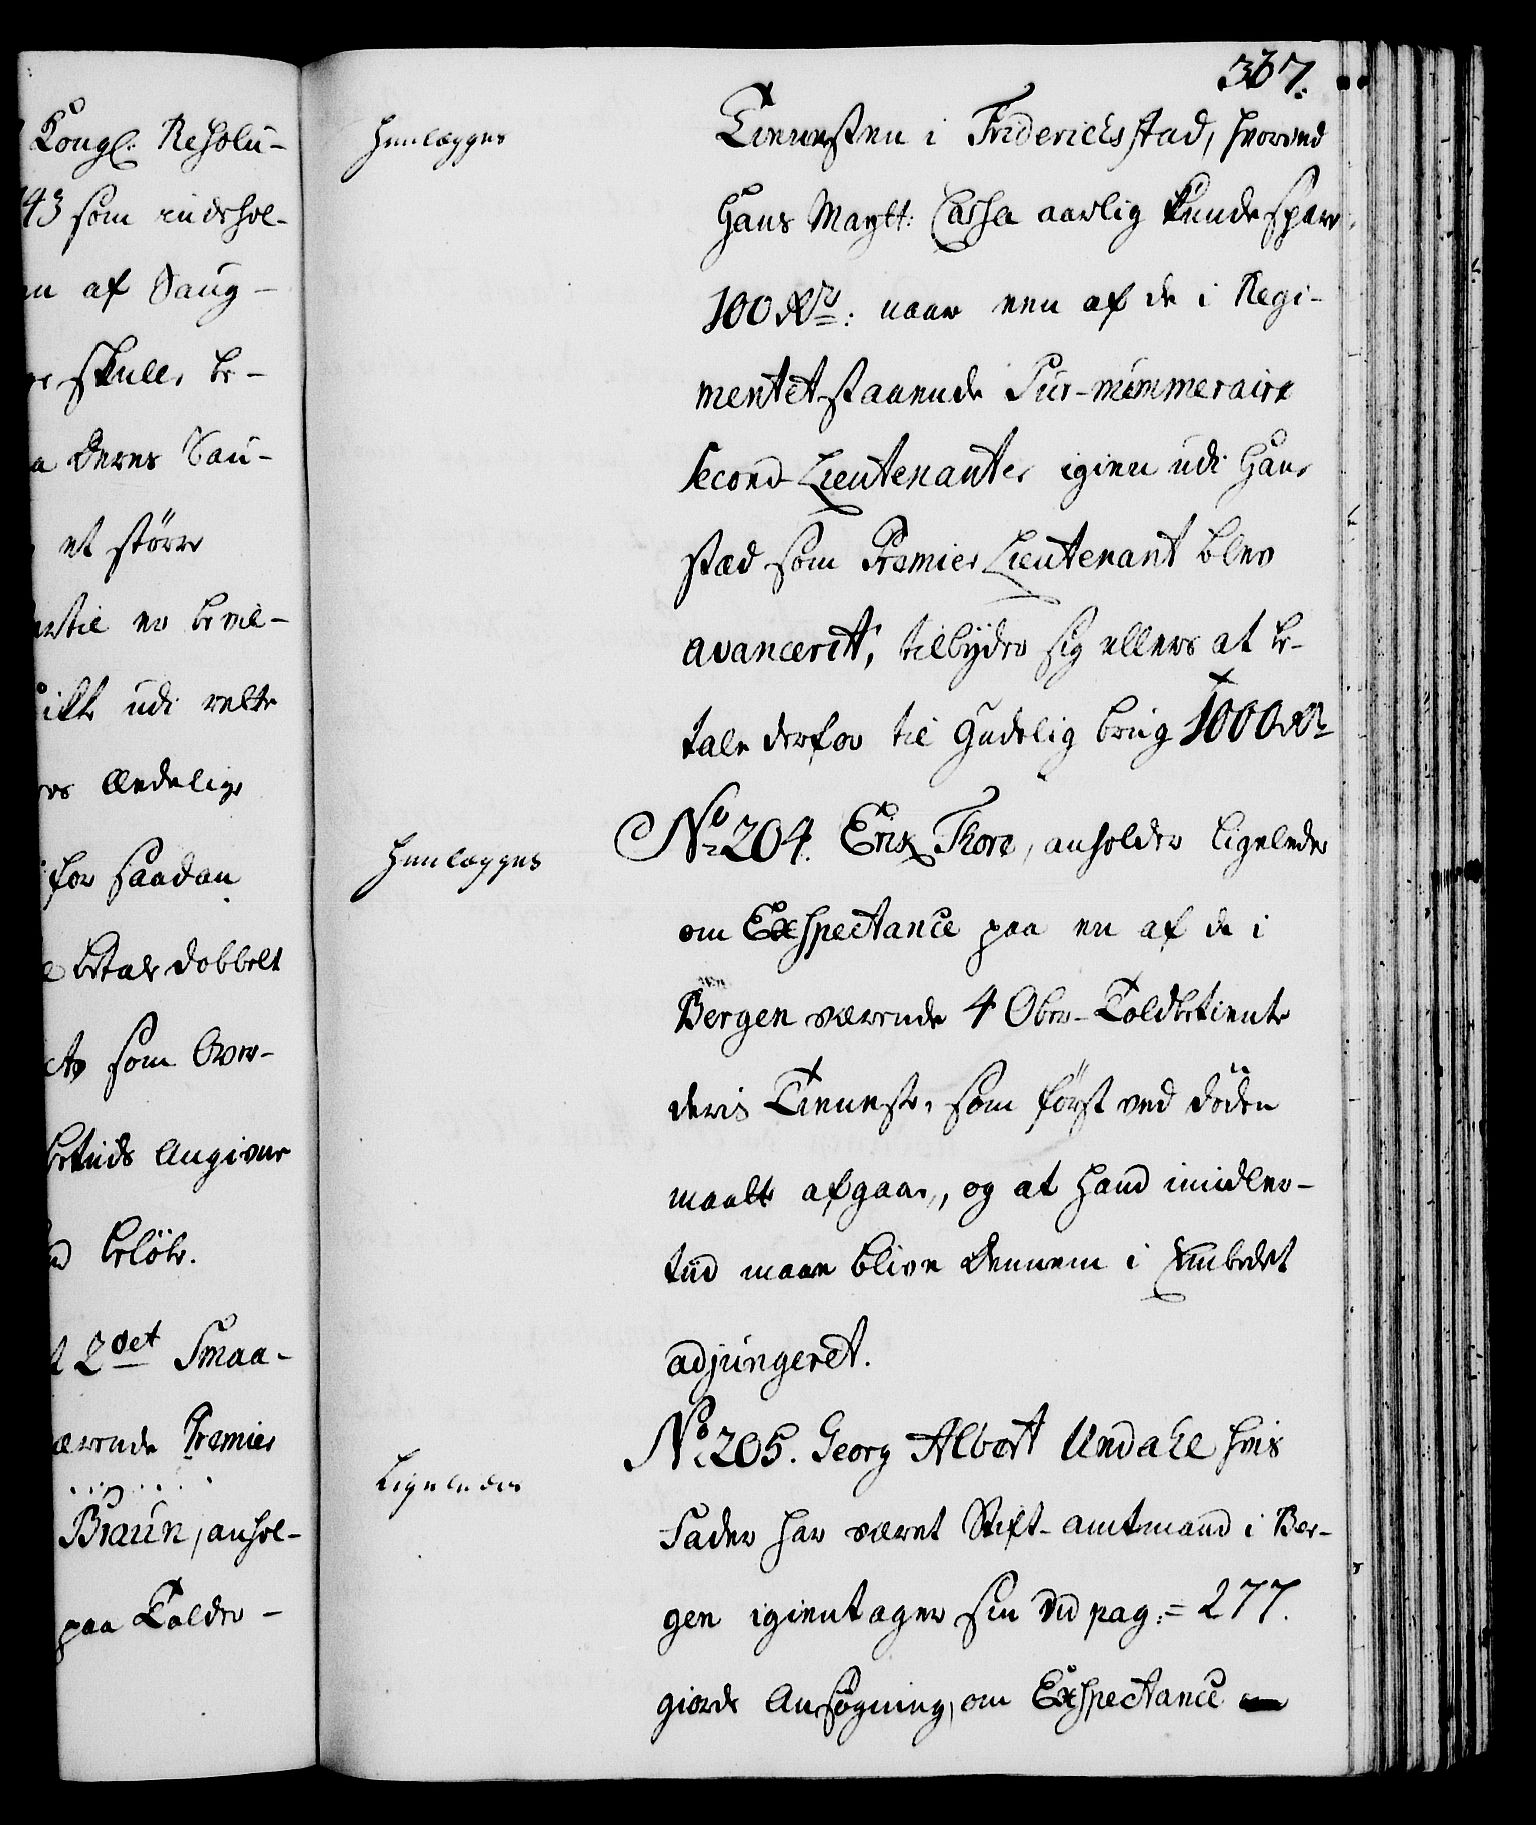 Kongl: Resolu-
43 som indehol-
af Saug-
skulle be-
deres Sau-
et större
til er bevil-
udi rette
Ædelige
for saadan
betale dobbelt
som Over-
Angivne
beløb.
2det Smaa-
værende Premier
Braun, anhol-
paa Tolder-
367.
Henlægges
Tienesten i Friderichsstad, hvorved
Hans Maytt: Cassa aarlig kunde spare
100 Rdr: naar een af de i Regi-
mentet staaende Sur-nummeraire
Second-Lieutenanter igien udi Hans
stæd som Premier Lieutenant blev
avancerit, tilbyder sig ellers at be-
tale derfor til Gudelig brug 1000 Rdr
Henlægges
No 204. Erik Thore, anholder ligeledes
om Exspectance paa en af de i
Bergen værende 4 Over-Toldbetiente
deris Tieneste, som først ved döden
maatte afgaae, og at hand imidler-
tiid maae blive dennem i Embedet
adjungeret.
Ligeledes
No 205. Georg Albert Undahl hvis
Fader har været Stift-amtmand i Ber-
gen igientager sin ved pag: 277.
giorde Ansøgning, om Exspectance